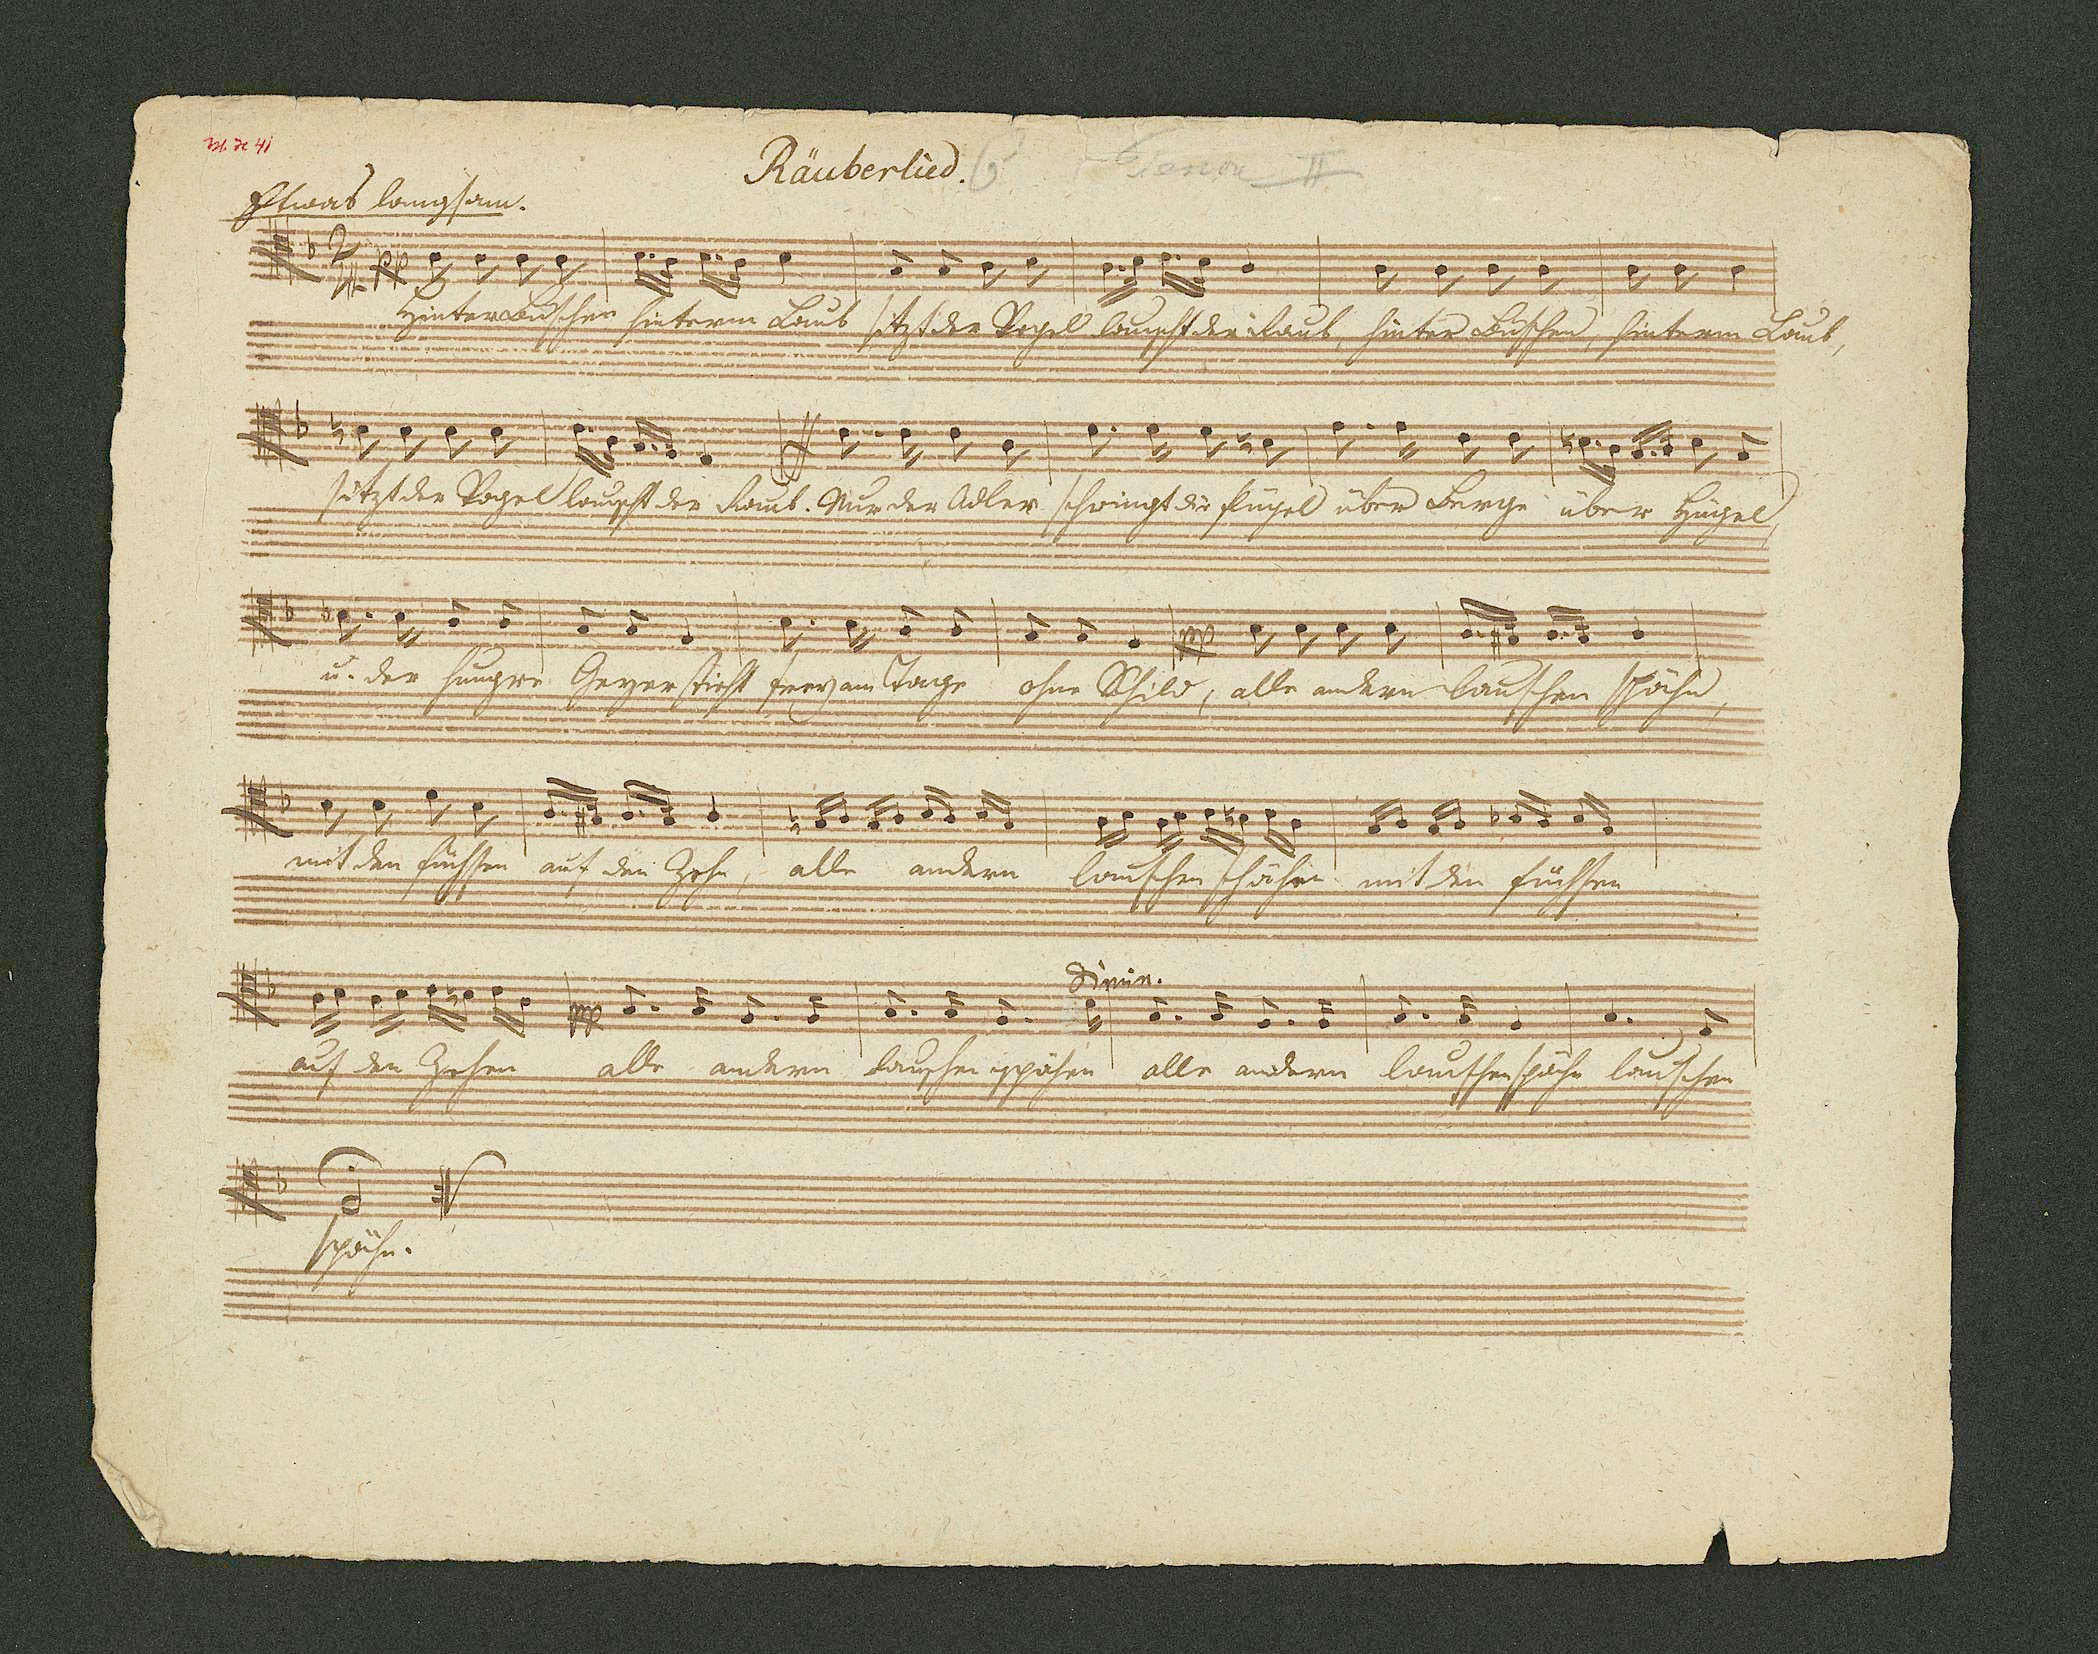 Räuberlied. Tenor II
Etwas langsam.
pp
Hinter Büschen hinterm Laub sitzt der Vogel lauscht der Raub, hinter Büschen, hinterm Laub,
sitzt der Vogel lauscht der Raub. Nur der Adler schwingt die Flügel über Berge über Hügel,
u. der hungre Geyer sticht frey am Tage ohne Schild, alle andern lauschen spähn,
pp
mit den Füchsen auf den Zehn, alle andern lauschen spähen mit den Füchsen
Dimin.
pp
auf den Zehen alle andern lauschen spähen alle andern lauschen spähn lauschen
spähn.